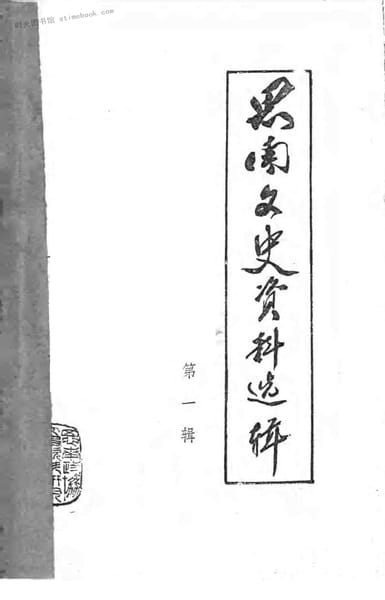 时光图书馆 atimebook.com
思南文史资料选辑
第一辑